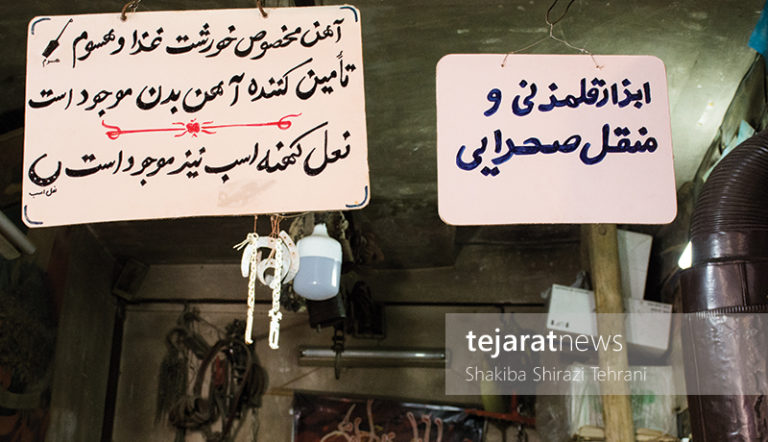 آهن مخصوص خورشت غذا و هسوم
هسوم
تأمین کننده آهن بدن موجود است
نعل کهنه اسب نیز موجود است
نعل اسب
ابزار قلمزنی و
منقل صحرایی
tejaratnews
Shakiba Shirazi Tehrani